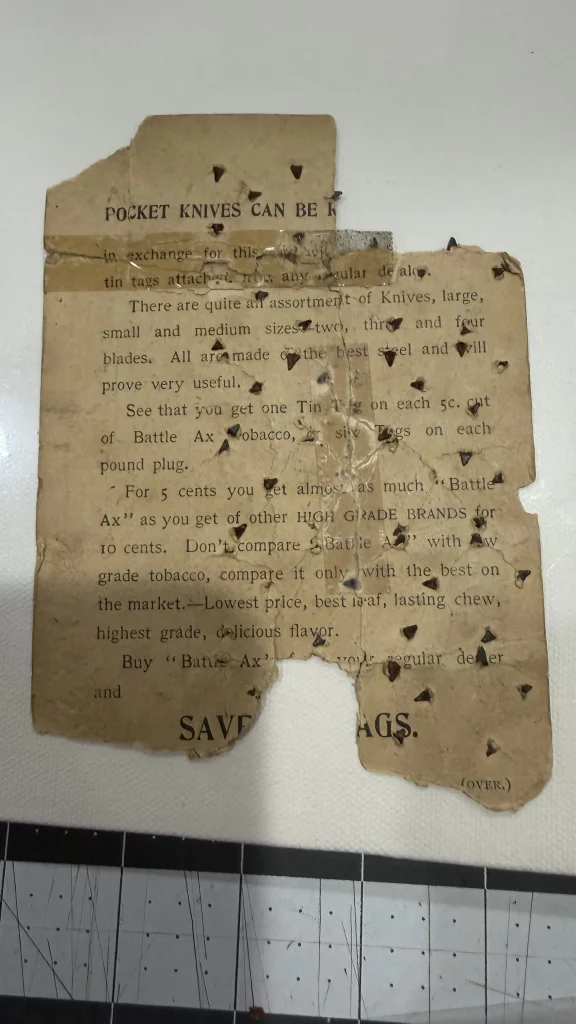 POCKET KNIVES CAN BE
in exchange for this
tin tags attached from any regular dealer.
There are quite an assortment of Knives, large,
small and medium sizes two, three and four
blades. All are made of the best steel and will
prove very useful.
See that you get one Tin Tag on each 5c. cut
of Battle Ax Tobacco, or six Tags on each
pound plug.
For 5 cents you get almost as much “Battle
Ax” as you get of other HIGH GRADE BRANDS for
10 cents. Don't compare “Battle Ax” with low
grade tobacco, compare it only with the best on
the market.—Lowest price, best leaf, lasting chew,
highest grade, delicious flavor.
Buy “Battle Ax” your regular dealer
and
SAVE AGS.
(OVER.)